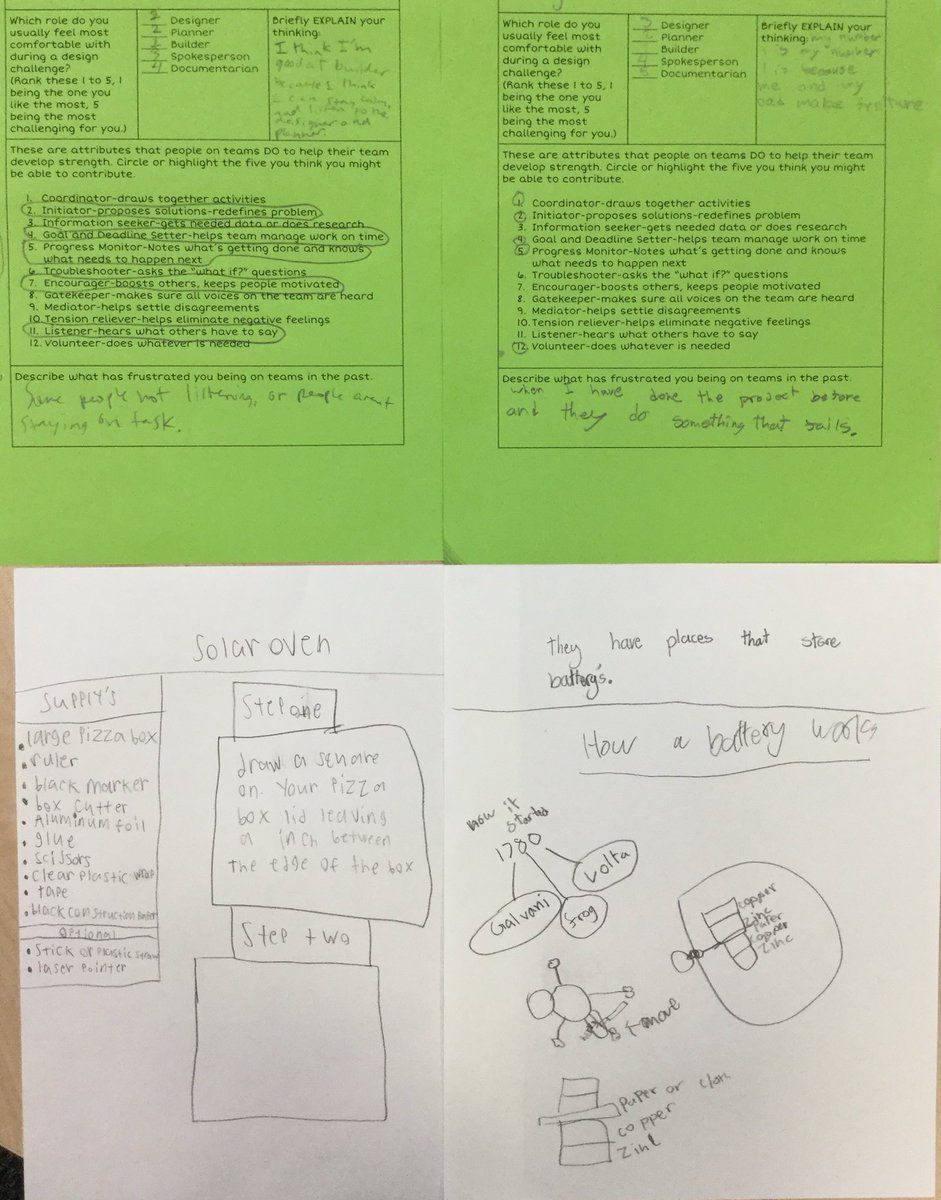 Which role do you
usually feel most
comfortable with
during a design
challenge?
(Rank these 1 to 5, 1
being the one you
like the most, 5
being the most
challenging for you.)
2 Designer
2 Planner
Builder
Spokesperson
4 Documentarian
Briefly EXPLAIN your
thinking:
I think I'm
good at builder
because I think
I can stay calm,
and listen to the
designer and
planner.
These are attributes that people on teams DO to help their team
develop strength. Circle or highlight the five you think you might
be able to contribute.
1. Coordinator-draws together activities
2. Initiator-proposes solutions-redefines problem
3. Information seeker-gets needed data or does research
4. Goal and Deadline Setter-helps team manage work on time
5. Progress Monitor-Notes what's getting done and knows
what needs to happen next
6. Troubleshooter-asks the "what if?" questions
7. Encourager-boosts others, keeps people motivated
8. Gatekeeper-makes sure all voices on the team are heard
9. Mediator-helps settle disagreements
10. Tension reliever-helps eliminate negative feelings
11. Listener-hears what others have to say
12. Volunteer-does whatever is needed
Describe what has frustrated you being on teams in the past.
Some people not listening, or people arent
staying on task.
Which role do you
usually feel most
comfortable with
during a design
challenge?
(Rank these 1 to 5, 1
being the one you
like the most, 5
being the most
challenging for you.)
3 Designer
Planner
Builder
4 Spokesperson
5 Documentarian
Briefly EXPLAIN your
thinking: my number
is my number
is because
me and my
dad make
These are attributes that people on teams DO to help their team
develop strength. Circle or highlight the five you think you might
be able to contribute.
1. Coordinator-draws together activities
2. Initiator-proposes solutions-redefines problem
3. Information seeker-gets needed data or does research
4. Goal and Deadline Setter-helps team manage work on time
5. Progress Monitor-Notes what's getting done and knows
what needs to happen next
6. Troubleshooter-asks the "what if?" questions
7. Encourager-boosts others, keeps people motivated
8. Gatekeeper-makes sure all voices on the team are heard
9. Mediator-helps settle disagreements
10. Tension reliever-helps eliminate negative feelings
11. Listener-hears what others have to say
12. Volunteer-does whatever is needed
Describe what has frustrated you being on teams in the past.
when I have done the project before
and they do something that fails.
Solar oven
Supply's
large Pizza box
ruler
black marker
box cutter
Aluminum foil
glue
scissors
clear plastic wrap
tape
black construction paper
optional
stick or plastic straw
laser pointer
Step one
draw a square
on. Your Pizza
box lid leaving
a inch between
the edge of the box
Step two
they have places that store
battery's.
How a battery works
how it
started
1780
Galvani
frog
Volta
copper
Zinc
Paper
copper
Zinc
move
Paper or cloth
copper
Zinc